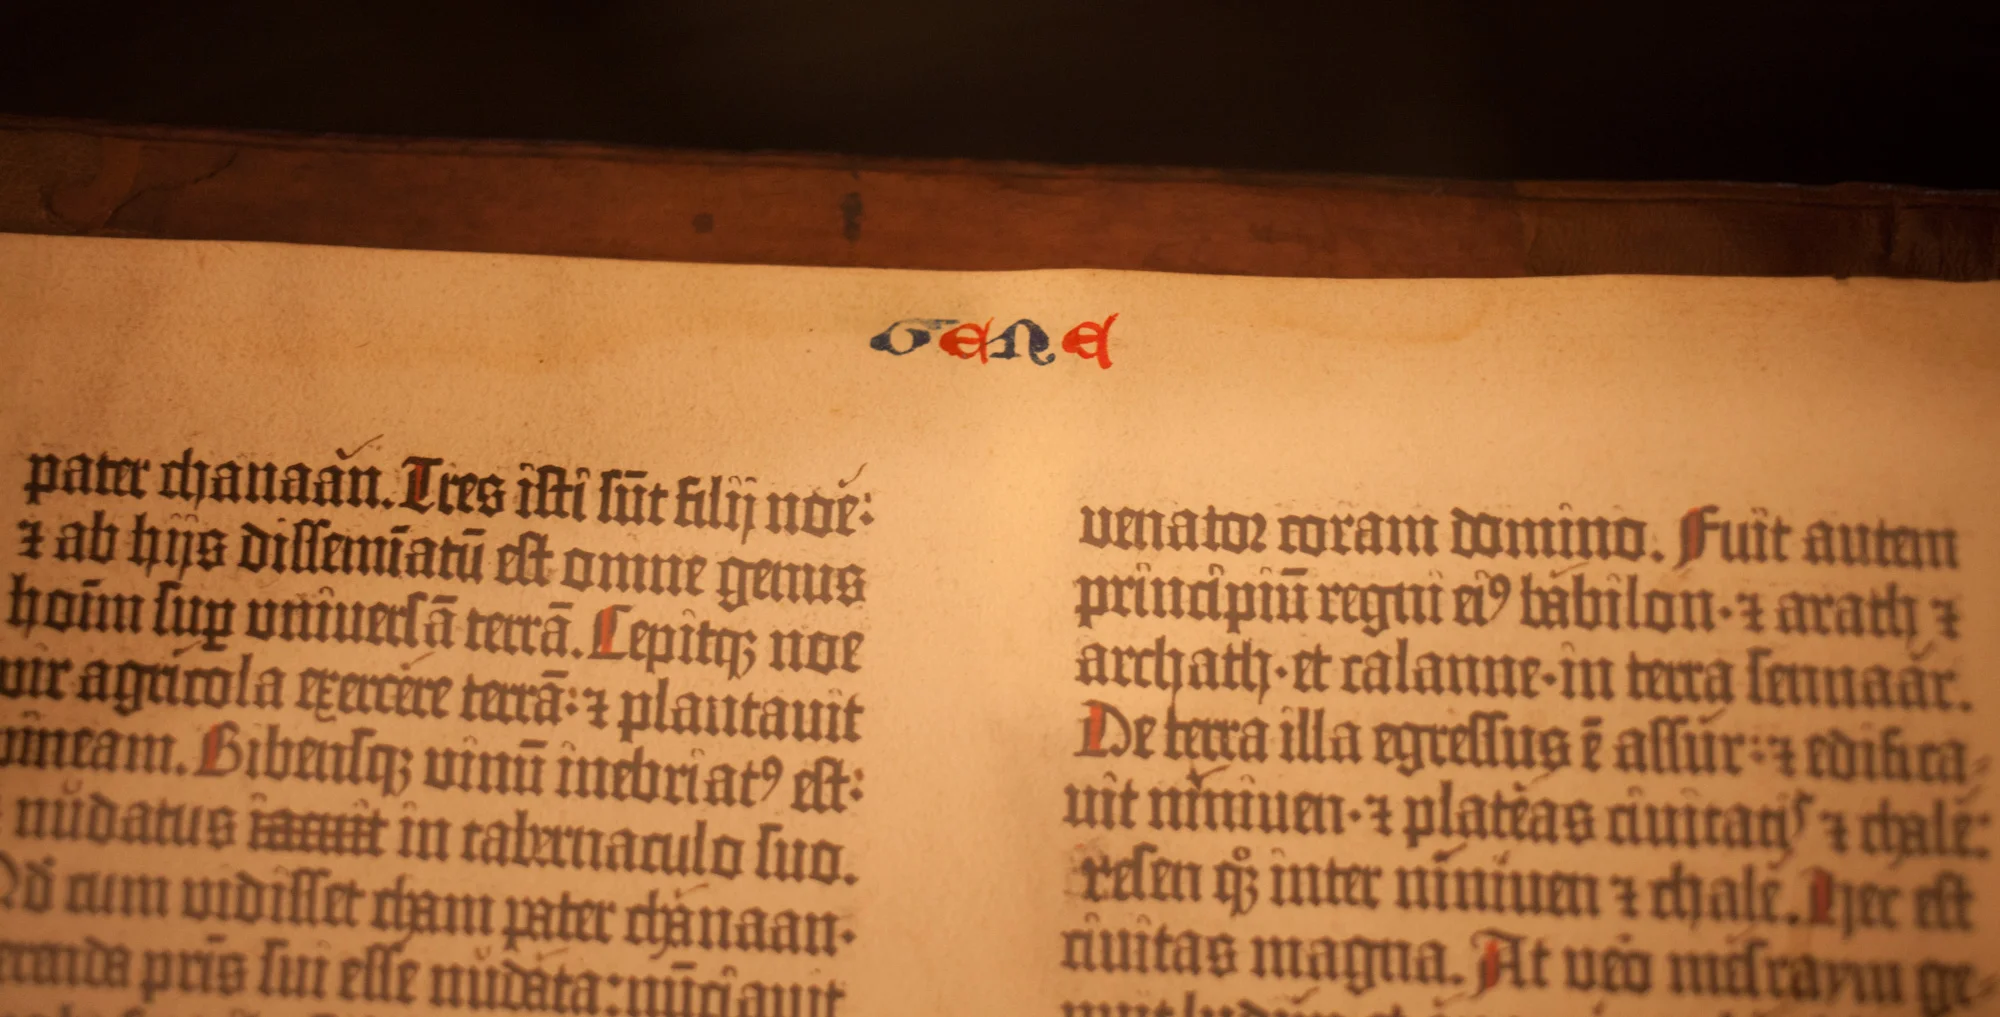 GENE
pater chanaan. Tres isti sūt filij noe:
⁊ ab hijs dissemīatū est omne genus
hoīm sup̱ vniuersā terrā. Cepitqꝫ noe
vir agricola exercere terrā: ⁊ plantauit
vineam. Bibensqꝫ vinū inebriatꝰ est:
nudatus iacuit in tabernaculo suo.
Qd̄ cum vidisset cham pater chanaan·
pr̄is sui esse nudata: nūciauit
venator coram domino. Fuit autem
principiū regni eiꝰ babilon· ⁊ arath ⁊
archath· et calanne· in terra sennaar.
De terra illa egressus ē assur: ⁊ edifica-
uit niniuen· ⁊ plateas ciuitatis ⁊ chale:
resen qꝫ inter niniuen ⁊ chale. Hec est
ciuitas magna. At vero mesraym ge-